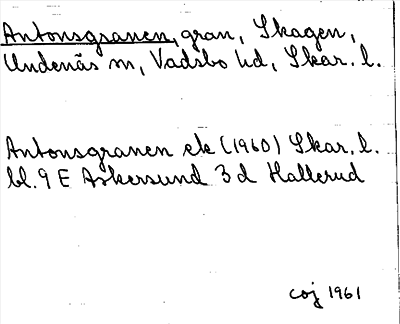 Antonsgranen, gran, Skagen,
Undenäs sn, Vadsbo hd, Skar. l.
Antonsgranen ek (1960) Skar. l.
bl. 9 E Askersund 3 d Hallerud
coj 1961